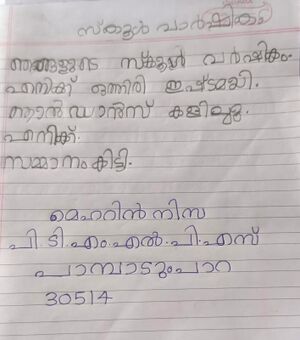 സ്കൂൾ വാർഷികം
ഞങ്ങളുടെ സ്കൂൾ വർഷികം
എനിക്ക് ഒത്തിരി ഇഷ്ടമായി.
ഞാൻ ഡാൻസ് കളിച്ചു.
എനിക്ക്
സമ്മാനം കിട്ടി.
മെഹറിൻ നിസ
പി.ടി.എം.എൽ.പി.എസ്
പാമ്പാടുംപാറ
30514